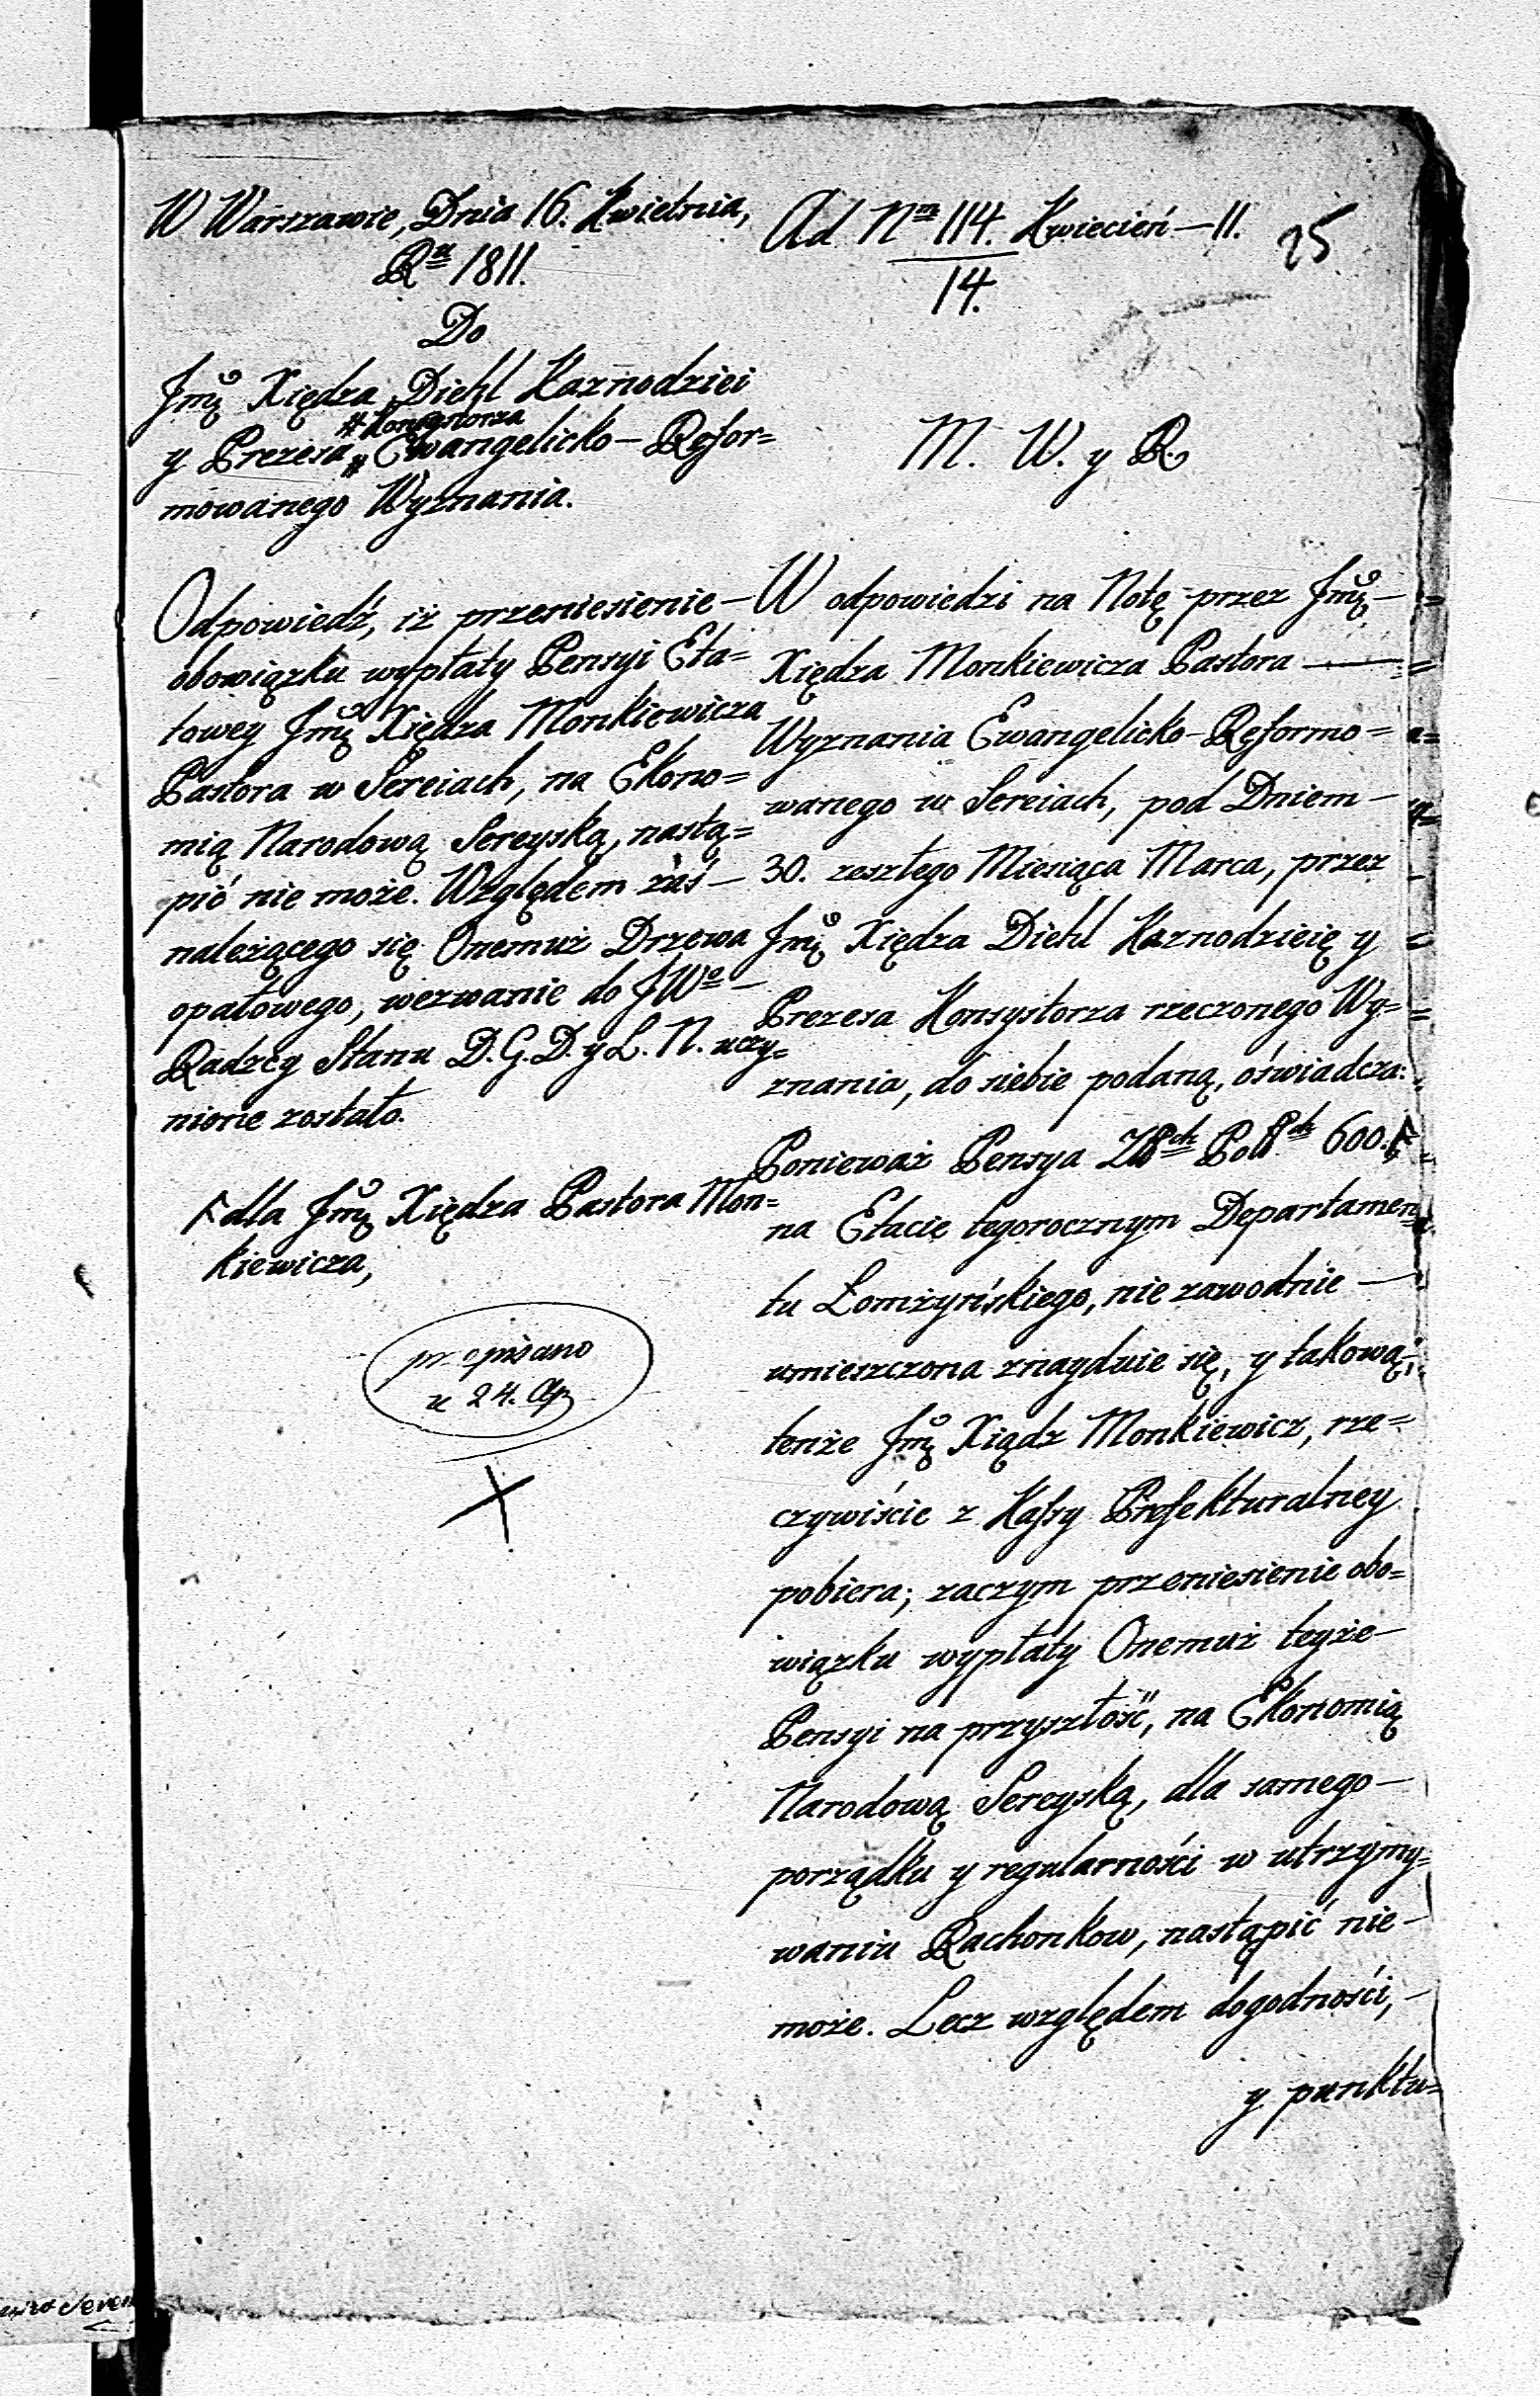 W Warszawie, Dnia 16. Kwietnia,
Rꝰ 1811.
Do
Jmć Xiędza Diehl Kaznodziei
# Konsystorza
y Prezesa # Ewangelicko – Refor=
mowanego Wyznania.
Odpowiedź, iż przeniesienie –
obowiązku wypłaty Pensyi Eta=
towey Jmć Xiędza Monkiewicza
Pastora w Sereiach, na Ekono=
mią Narodową Sereyską, nastą=
pić nie może. Względem zaś –
należącego się Onemuż Drzewa
opałowego, wezwanie do JWo –
Radzcy Stanu D. G. D. y L. N. uczy=
nione zostało.
F dla Jmć Xiędza Pastora Mon=
kiewicza,
przepisano
24. Ap
Ad Nm 114. Kwiecień – 11.
14.
25
M. W. y R.
W odpowiedzi na Notę przez Jmć –
Xiędza Monkiewicza Pastora –
Wyznania Ewangelicko – Reformo=
wanego w Sereiach, pod Dniem –
30. zeszłego Miesiąca Marca, przez
Jmć Xiędza Diehl Kaznodzieię y
Prezesa Konsystorza rzeczonego Wy=
znania, do siebie podaną, oświadcza:
Ponieważ Pensya Złłch Pollch 600. F
na Etacie tegorocznym Departamen=
tu Łomżyńskiego, nie zawodnie –
umieszczona znayduie się, y takową,
tenże Jmć Xiądz Monkiewicz, rze=
czywiście z Kassy Prefekturalney
pobiera; zaczym przeniesienie obo=
wiązku wypłaty Onemuż teyże –
Pensyi na przyszłość, na Ekonomią
Narodową Sereyską, dla samego –
porządku y regularności w utrzymy=
waniu Rachonkow, nastąpić nie –
może. Lecz względem dogodności, –
y punktu=